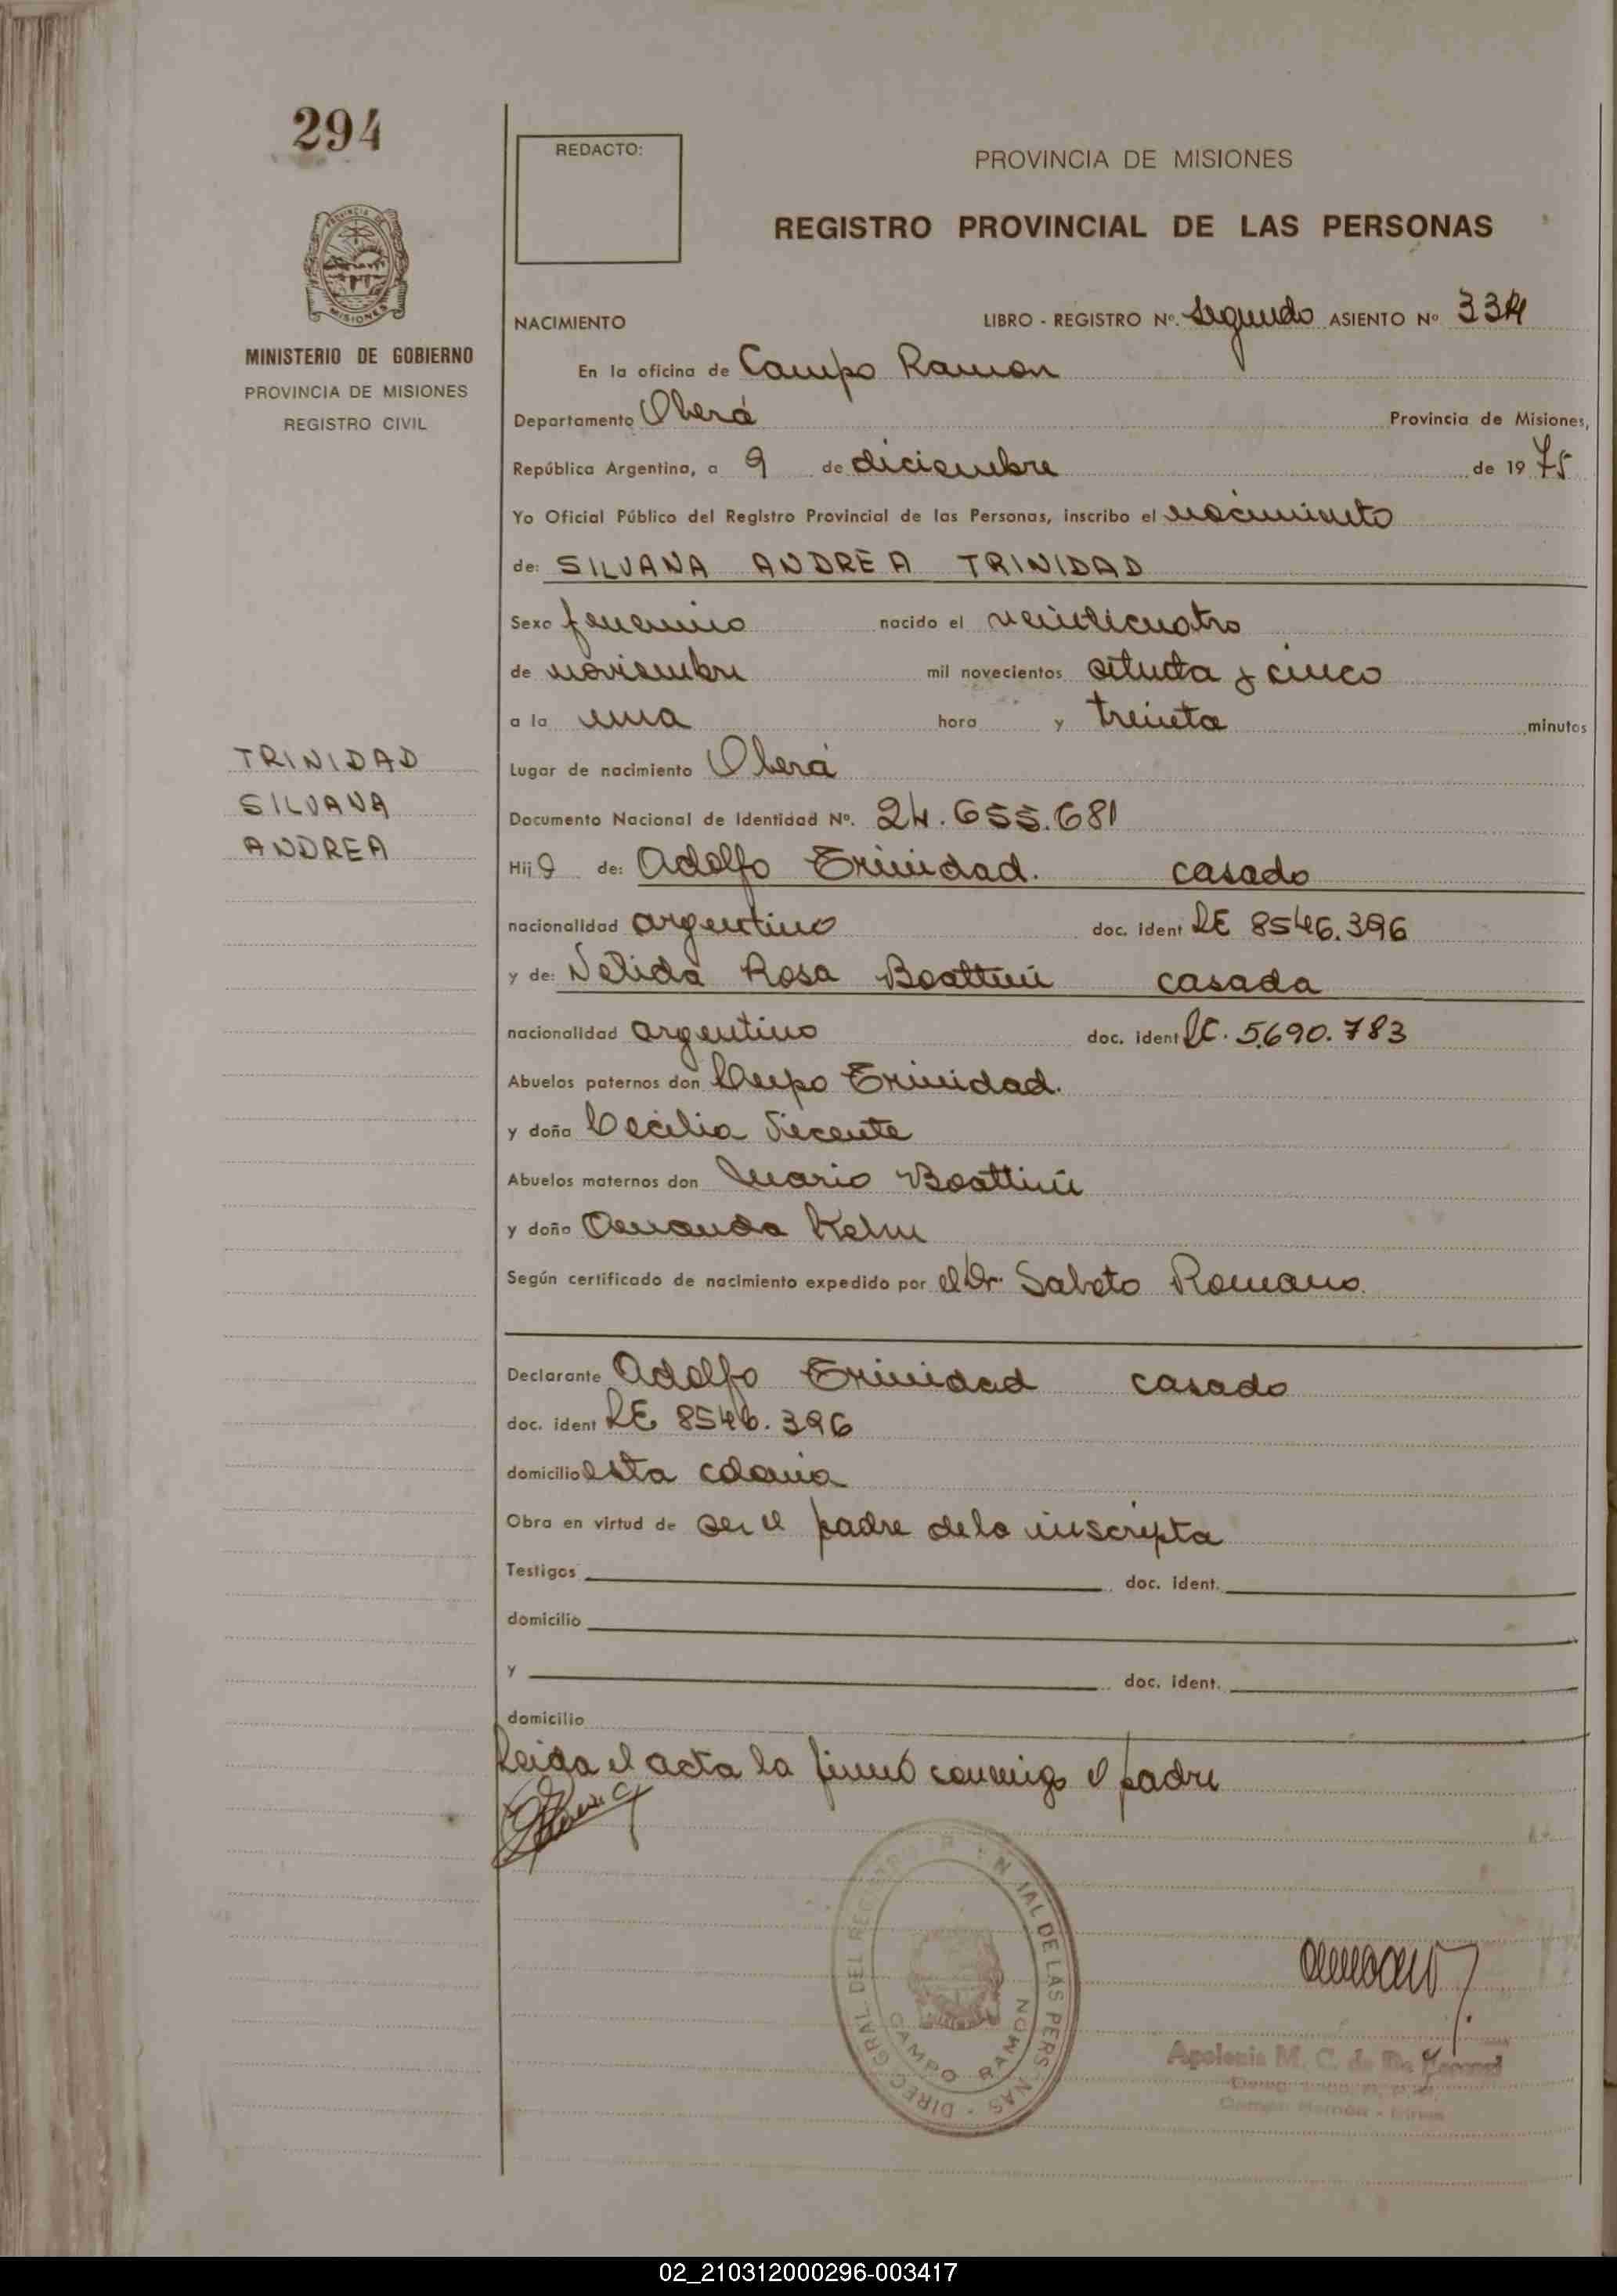 294
REDACTO:
PROVINCIA DE MISIONES
REGISTRO PROVINCIAL DE LAS PERSONAS
PROVINCIA DE
MISIONES
MINISTERIO DE GOBIERNO
PROVINCIA DE MISIONES
REGISTRO CIVIL
NACIMIENTO LIBRO - REGISTRO Nº. segundo ASIENTO Nº
En la oficina de Campo Ramon
Departamento Oberá Provincia de Misiones,
República Argentina, a 9 de diciembre de 1975
Yo Oficial Público del Registro Provincial de las Personas, inscribo el nacimiento
de: SILVANA ANDREA TRINIDAD
Sexo femenino nacido el veinticuatro
de noviembre mil novecientos setenta y cinco
a la una hora y treinta minutos
TRINIDAD
SILVANA
ANDREA
Lugar de nacimiento Oberá
Documento Nacional de Identidad Nº. 24.655.681
Hija de: Adolfo Trinidad. casado
nacionalidad argentino doc. ident LE 8546.396
y de: Nelida Rosa Boattini casada
nacionalidad argentino doc. ident LC. 5.690.783
Abuelos paternos don Trinidad.
y doña Cecilia Vicente
Abuelos maternos don Mario Boattini
y doña Kelm
Según certificado de nacimiento expedido por el Dr. Sabato Romano.
Declarante Adolfo Trinidad casado
doc. ident LE 8546.396
domicilio esta colonia
Obra en virtud de ser el padre de la inscripta
Testigos doc. ident.
domicilio
y doc. ident.
domicilio
Leida el acta la firmó conmigo el padre
DIREC. GRAL. DEL REG
IAL DE LAS PERS NAS
CAMPO RAMON
Apolonia M. C. de
02_210312000296-003417